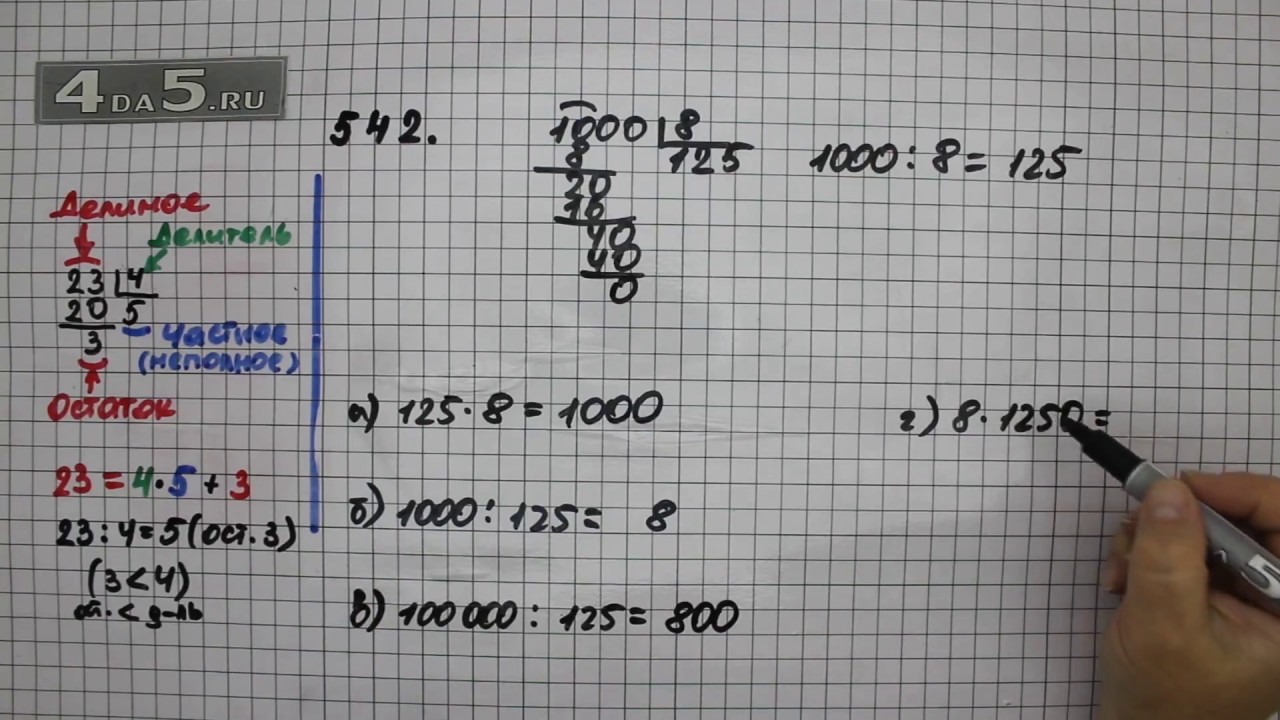 4DA5.RU
542.
1000 8
8 125
20
16
40
40
0
1000 : 8 = 125
Делимое
Делитель
23 4
20 5
3
частное
(неполное)
Остаток
23 = 4 · 5 + 3
23 : 4 = 5 (ост. 3)
(3 < 4)
ост. < д-ль
а) 125 · 8 = 1000
б) 1000 : 125 = 8
в) 100 000 : 125 = 800
г) 8 · 1250 =